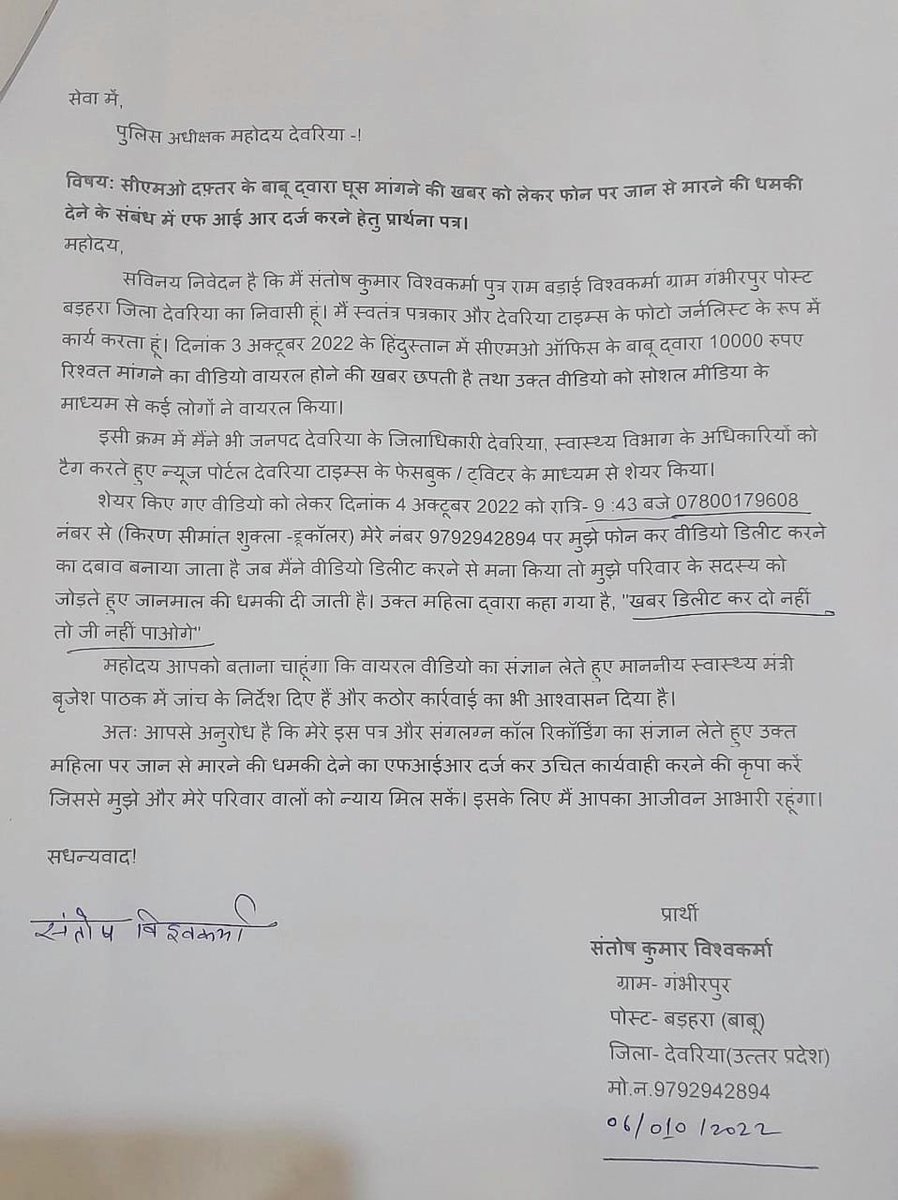 सेवा में,
पुलिस अधीक्षक महोदय देवरिया -!
विषय: सीएमओ दफ़्तर के बाबू द्वारा घूस मांगने की खबर को लेकर फोन पर जान से मारने की धमकी
देने के संबंध में एफ आई आर दर्ज करने हेतु प्रार्थना पत्र।
महोदय,
सविनय निवेदन है कि मैं संतोष कुमार विश्वकर्मा पुत्र राम बड़ाई विश्वकर्मा ग्राम गंभीरपुर पोस्ट
बड़हरा जिला देवरिया का निवासी हूं। मैं स्वतंत्र पत्रकार और देवरिया टाइम्स के फोटो जर्नलिस्ट के रूप में
कार्य करता हूं। दिनांक 3 अक्टूबर 2022 के हिंदुस्तान में सीएमओ ऑफिस के बाबू द्वारा 10000 रुपए
रिश्वत मांगने का वीडियो वायरल होने की खबर छपती है तथा उक्त वीडियो को सोशल मीडिया के
माध्यम से कई लोगों ने वायरल किया।
इसी क्रम में मैंने भी जनपद देवरिया के जिलाधिकारी देवरिया, स्वास्थ्य विभाग के अधिकारियों को
टैग करते हुए न्यूज पोर्टल देवरिया टाइम्स के फेसबुक / ट्विटर के माध्यम से शेयर किया।
शेयर किए गए वीडियो को लेकर दिनांक 4 अक्टूबर 2022 को रात्रि- 9 :43 बजे 07800179608
नंबर से (किरण सीमांत शुक्ला -ट्रूकॉलर) मेरे नंबर 9792942894 पर मुझे फोन कर वीडियो डिलीट करने
का दबाव बनाया जाता है जब मैंने वीडियो डिलीट करने से मना किया तो मुझे परिवार के सदस्य को
जोड़ते हुए जानमाल की धमकी दी जाती है। उक्त महिला द्वारा कहा गया है, "खबर डिलीट कर दो नहीं
तो जी नहीं पाओगे"
महोदय आपको बताना चाहूंगा कि वायरल वीडियो का संज्ञान लेते हुए माननीय स्वास्थ्य मंत्री
बृजेश पाठक में जांच के निर्देश दिए हैं और कठोर कार्रवाई का भी आश्वासन दिया है।
अतः आपसे अनुरोध है कि मेरे इस पत्र और संगलग्न कॉल रिकॉर्डिंग का संज्ञान लेते हुए उक्त
महिला पर जान से मारने की धमकी देने का एफआईआर दर्ज कर उचित कार्यवाही करने की कृपा करें
जिससे मुझे और मेरे परिवार वालों को न्याय मिल सकें। इसके लिए मैं आपका आजीवन आभारी रहूंगा।
सधन्यवाद!
संतोष विश्वकर्मा
प्रार्थी
संतोष कुमार विश्वकर्मा
ग्राम- गंभीरपुर
पोस्ट- बड़हरा (बाबू)
जिला- देवरिया(उत्तर प्रदेश)
मो.न.9792942894
06/010/2022